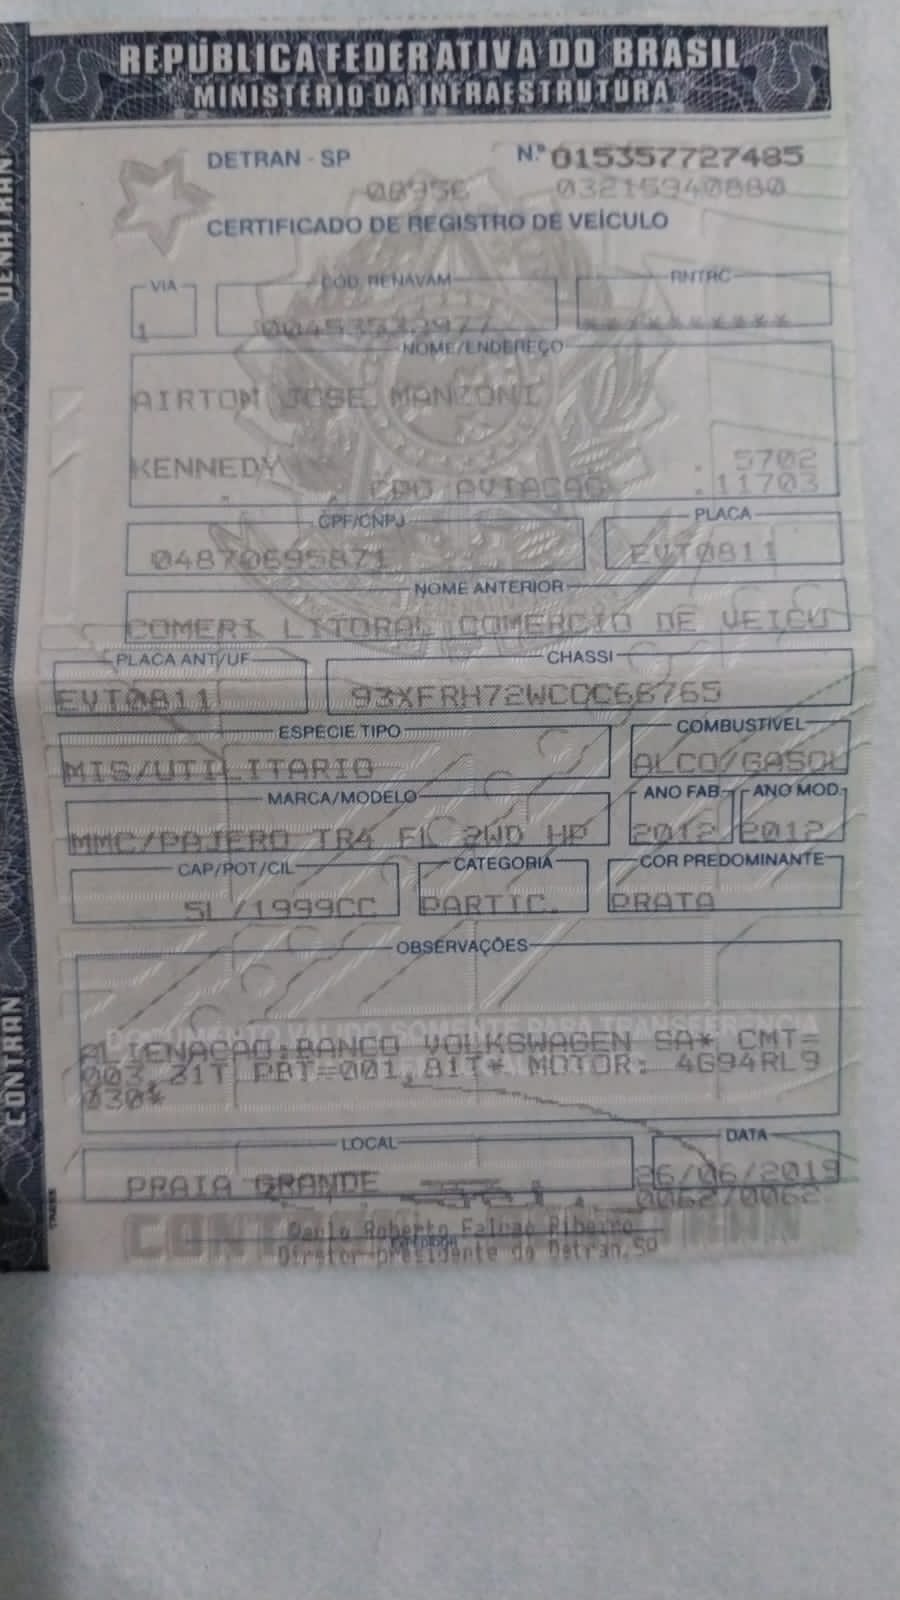 REPÚBLICA FEDERATIVA DO BRASIL
MINISTÉRIO DA INFRAESTRUTURA
DENATRAN
DETRAN - SP
N.º 015357727485
08956 032159940880
CERTIFICADO DE REGISTRO DE VEÍCULO
VIA
1
CÓD. RENAVAM
RNTRC
**********
NOME/ENDEREÇO
AIRTON JOSE MANZONI
KENNEDY . 5702
. . CPO AVIACAO .11703
CPF/CNPJ
04870695871
PLACA
EVT0811
NOME ANTERIOR
COMERI LITORAL COMERCIO DE VEICU
PLACA ANT/UF
EVT0811
CHASSI
93XFRH72WCCC66765
ESPÉCIE TIPO
MIS/UTILITARIO
COMBUSTÍVEL
ALCO/GASOL
MARCA/MODELO
MMC/PAJERO TR4 FL 2WD HP
ANO FAB.
2012
ANO MOD.
2012
CAP/POT/CIL
5L /1999CC
CATEGORIA
PARTIC.
COR PREDOMINANTE
PRATA
OBSERVAÇÕES
DOCUMENTO VÁLIDO SOMENTE PARA TRANSFERÊNCIA
ALIENACAO:BANCO VOLKSWAGEN SA* CMT=
003,31T PBT=001,81T* MOTOR: 4G94RL9
030*
CONTRAN
LOCAL
PRAIA GRANDE
DATA
26/06/2019
0062/0062
Paulo Roberto Falcao Ribeiro
Diretor-presidente do Detran.SP